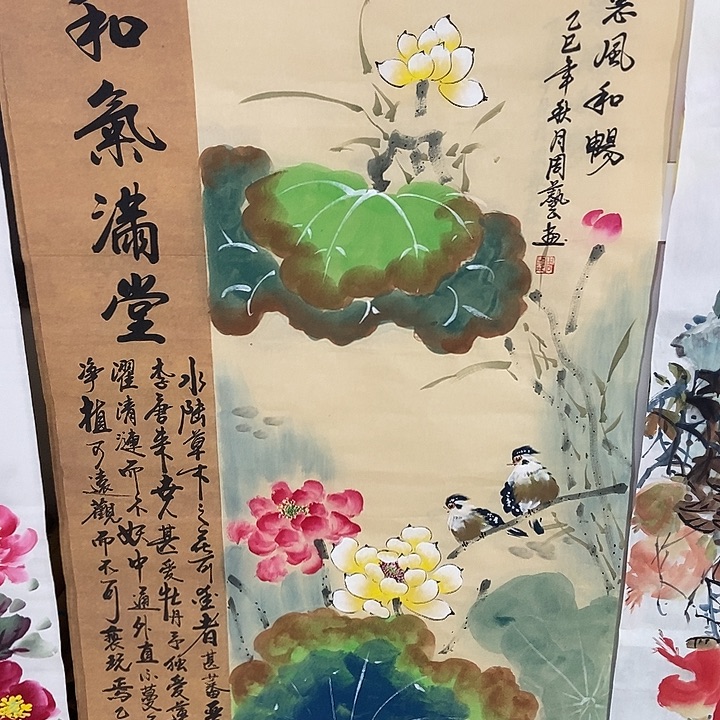 風和暢
乙巳年秋月周藝画
和氣滿堂
水陸草木之花可愛者甚蕃
李唐来世人甚愛牡丹予独愛蓮
濯清漣而不妖中通外直不蔓
净植可遠觀而不可褻玩焉乙